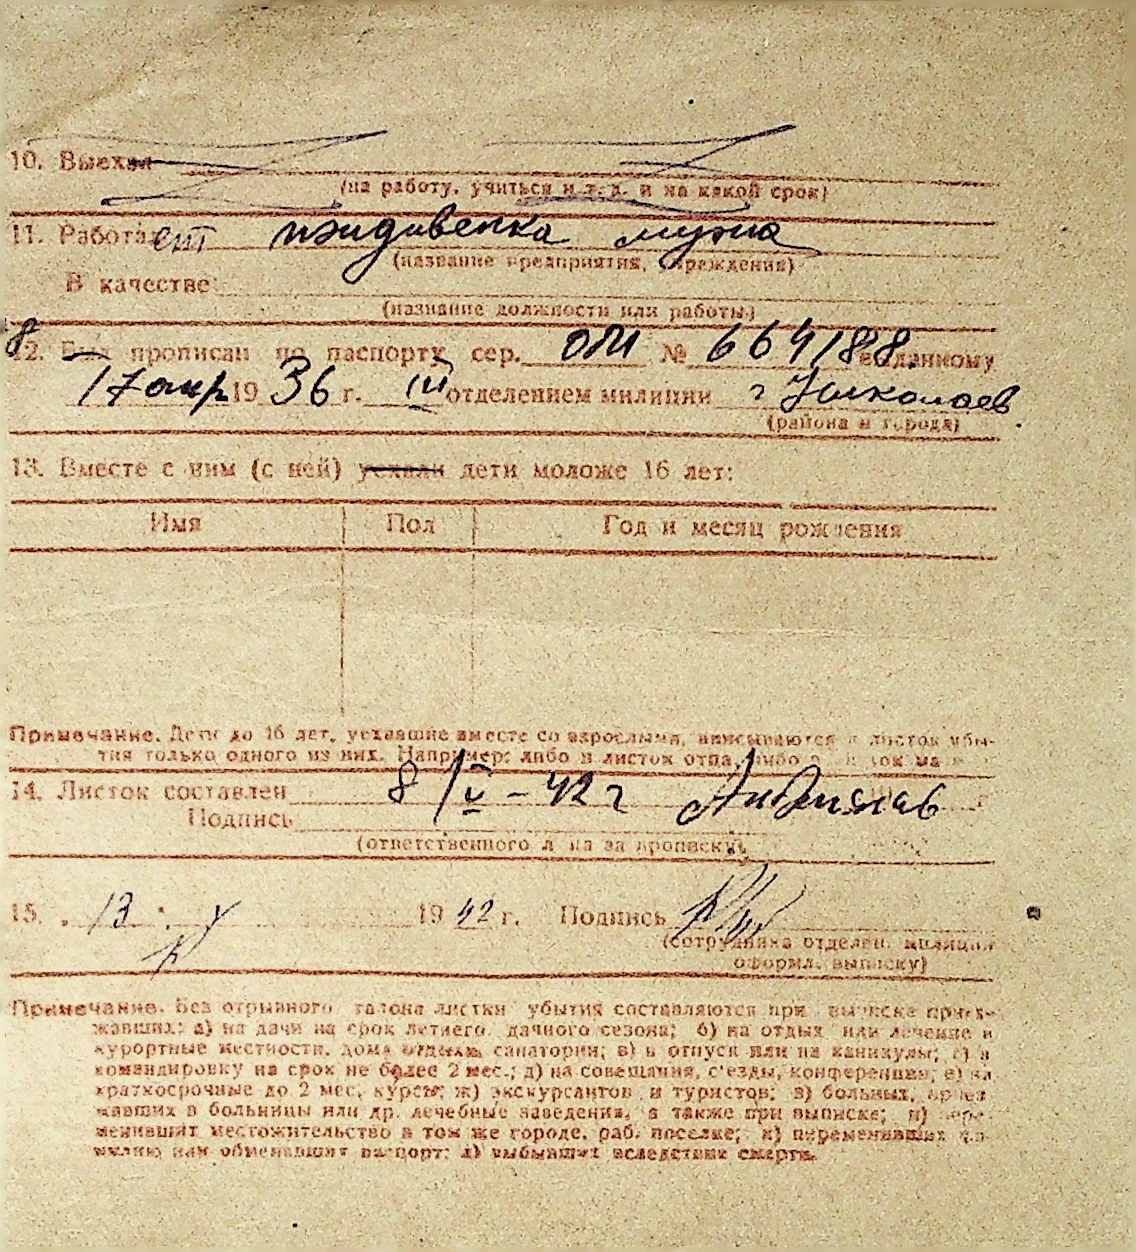 10. Выехал
(на работу, учиться и т. д. и на какой срок)
11. Работа иждивенка мужа
(название предприятия, учреждения)
В качестве
(название должности или работы)
12. Был прописан по паспорту сер. № 664188 выданному
17 апр 1936 г. III отделением милиции г Николаев
(района и города)
13. Вместе с ним (с ней) уехали дети моложе 16 лет:
Имя Пол Год и месяц рождения
Примечание. Дети до 16 лет, уехавшие вместе со взрослыми, вписываются в листок убы-
тия только одного из них. Например: либо в листок отца, либо в листок ма
14. Листок составлен 8/V – 42 г
Подпись
(ответственного лица за прописку)
15. 13 V 1942 г. Подпись
(сотрудника отделен. милиции
оформл. выписку)
Примечание. Без отрывного талона листки убытия составляются при выписке приез-
жавших: а) на дачи на срок летнего дачного сезона; б) на отдых или лечение в
курортные местности, дома отдыха, санатории; в) в отпуск или на каникулы; г) в
командировку на срок не более 2 мес.; д) на совещания, с'езды, конференции; е) на
краткосрочные до 2 мес. курсы; ж) экскурсантов и туристов; з) больных, приез
жавших в больницы или др. лечебные заведения, а также при выписке; и) пере-
менивших местожительство в том же городе, раб. поселке; к) переменивших фа-
милию или обменявших паспорт; л) выбывших вследствие смерти.